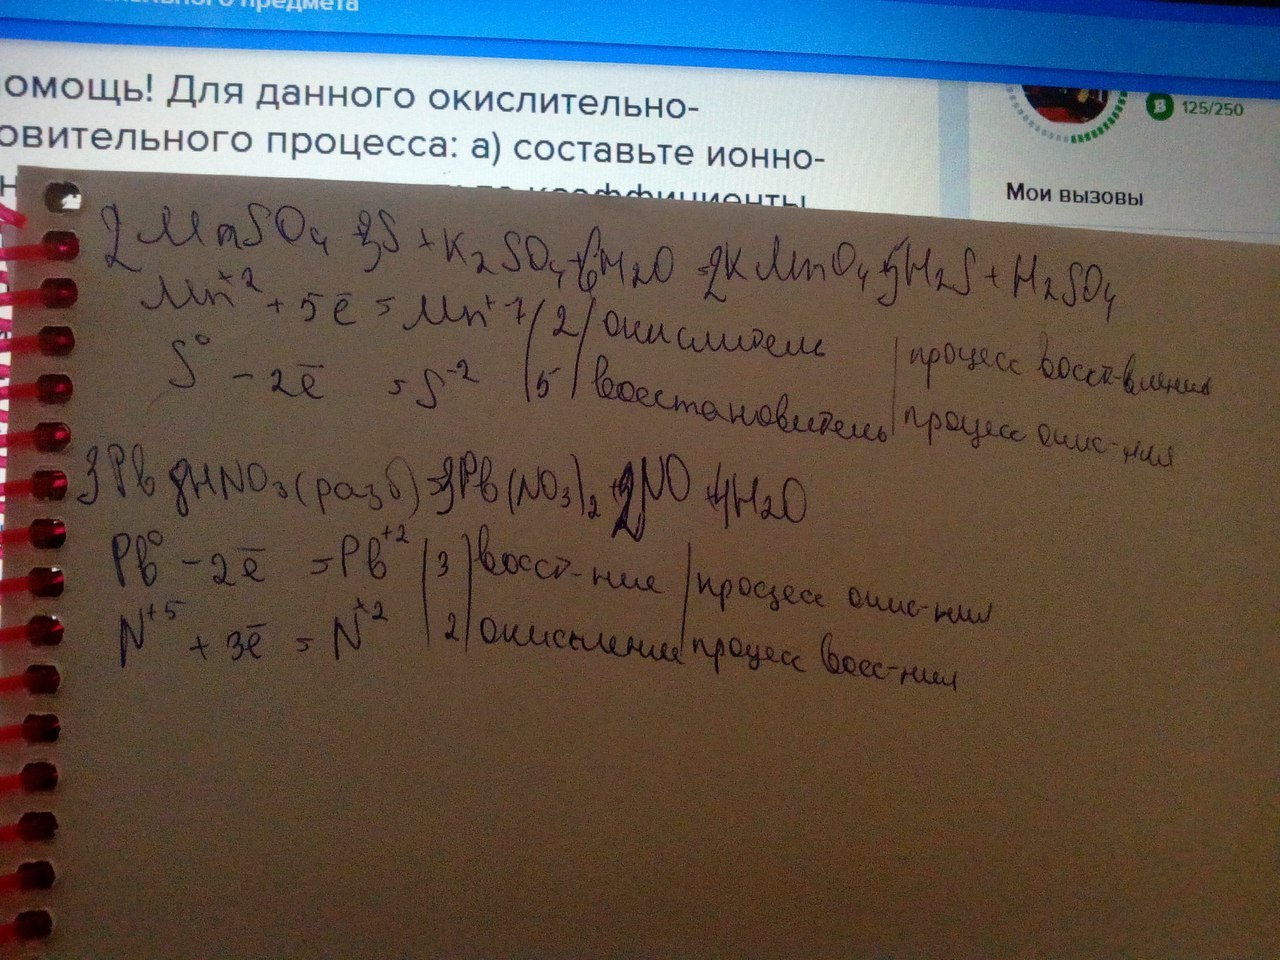 ального предмета
омощь! Для данного окислительно-
овительного процесса: а) составьте ионно-
коэффициенты
125/250
Мои вызовы
2MnSO4 5S + K2SO4 + 6H2O = 2KMnO4 5H2S + H2SO4
Mn+2 + 5e̅ = Mn+7 | 2 | окислитель | процесс восст-вления
S0 - 2e̅ = S-2 | 5 | восстановитель | процесс окис-ния
3Pb 8HNO3 (разб) = 3Pb(NO3)2 + 2NO + 4H2O
Pb0 - 2e̅ = Pb+2 | 3 | восст-ние | процесс окис-ния
N+5 + 3e̅ = N+2 | 2 | окисление | процесс восс-ния